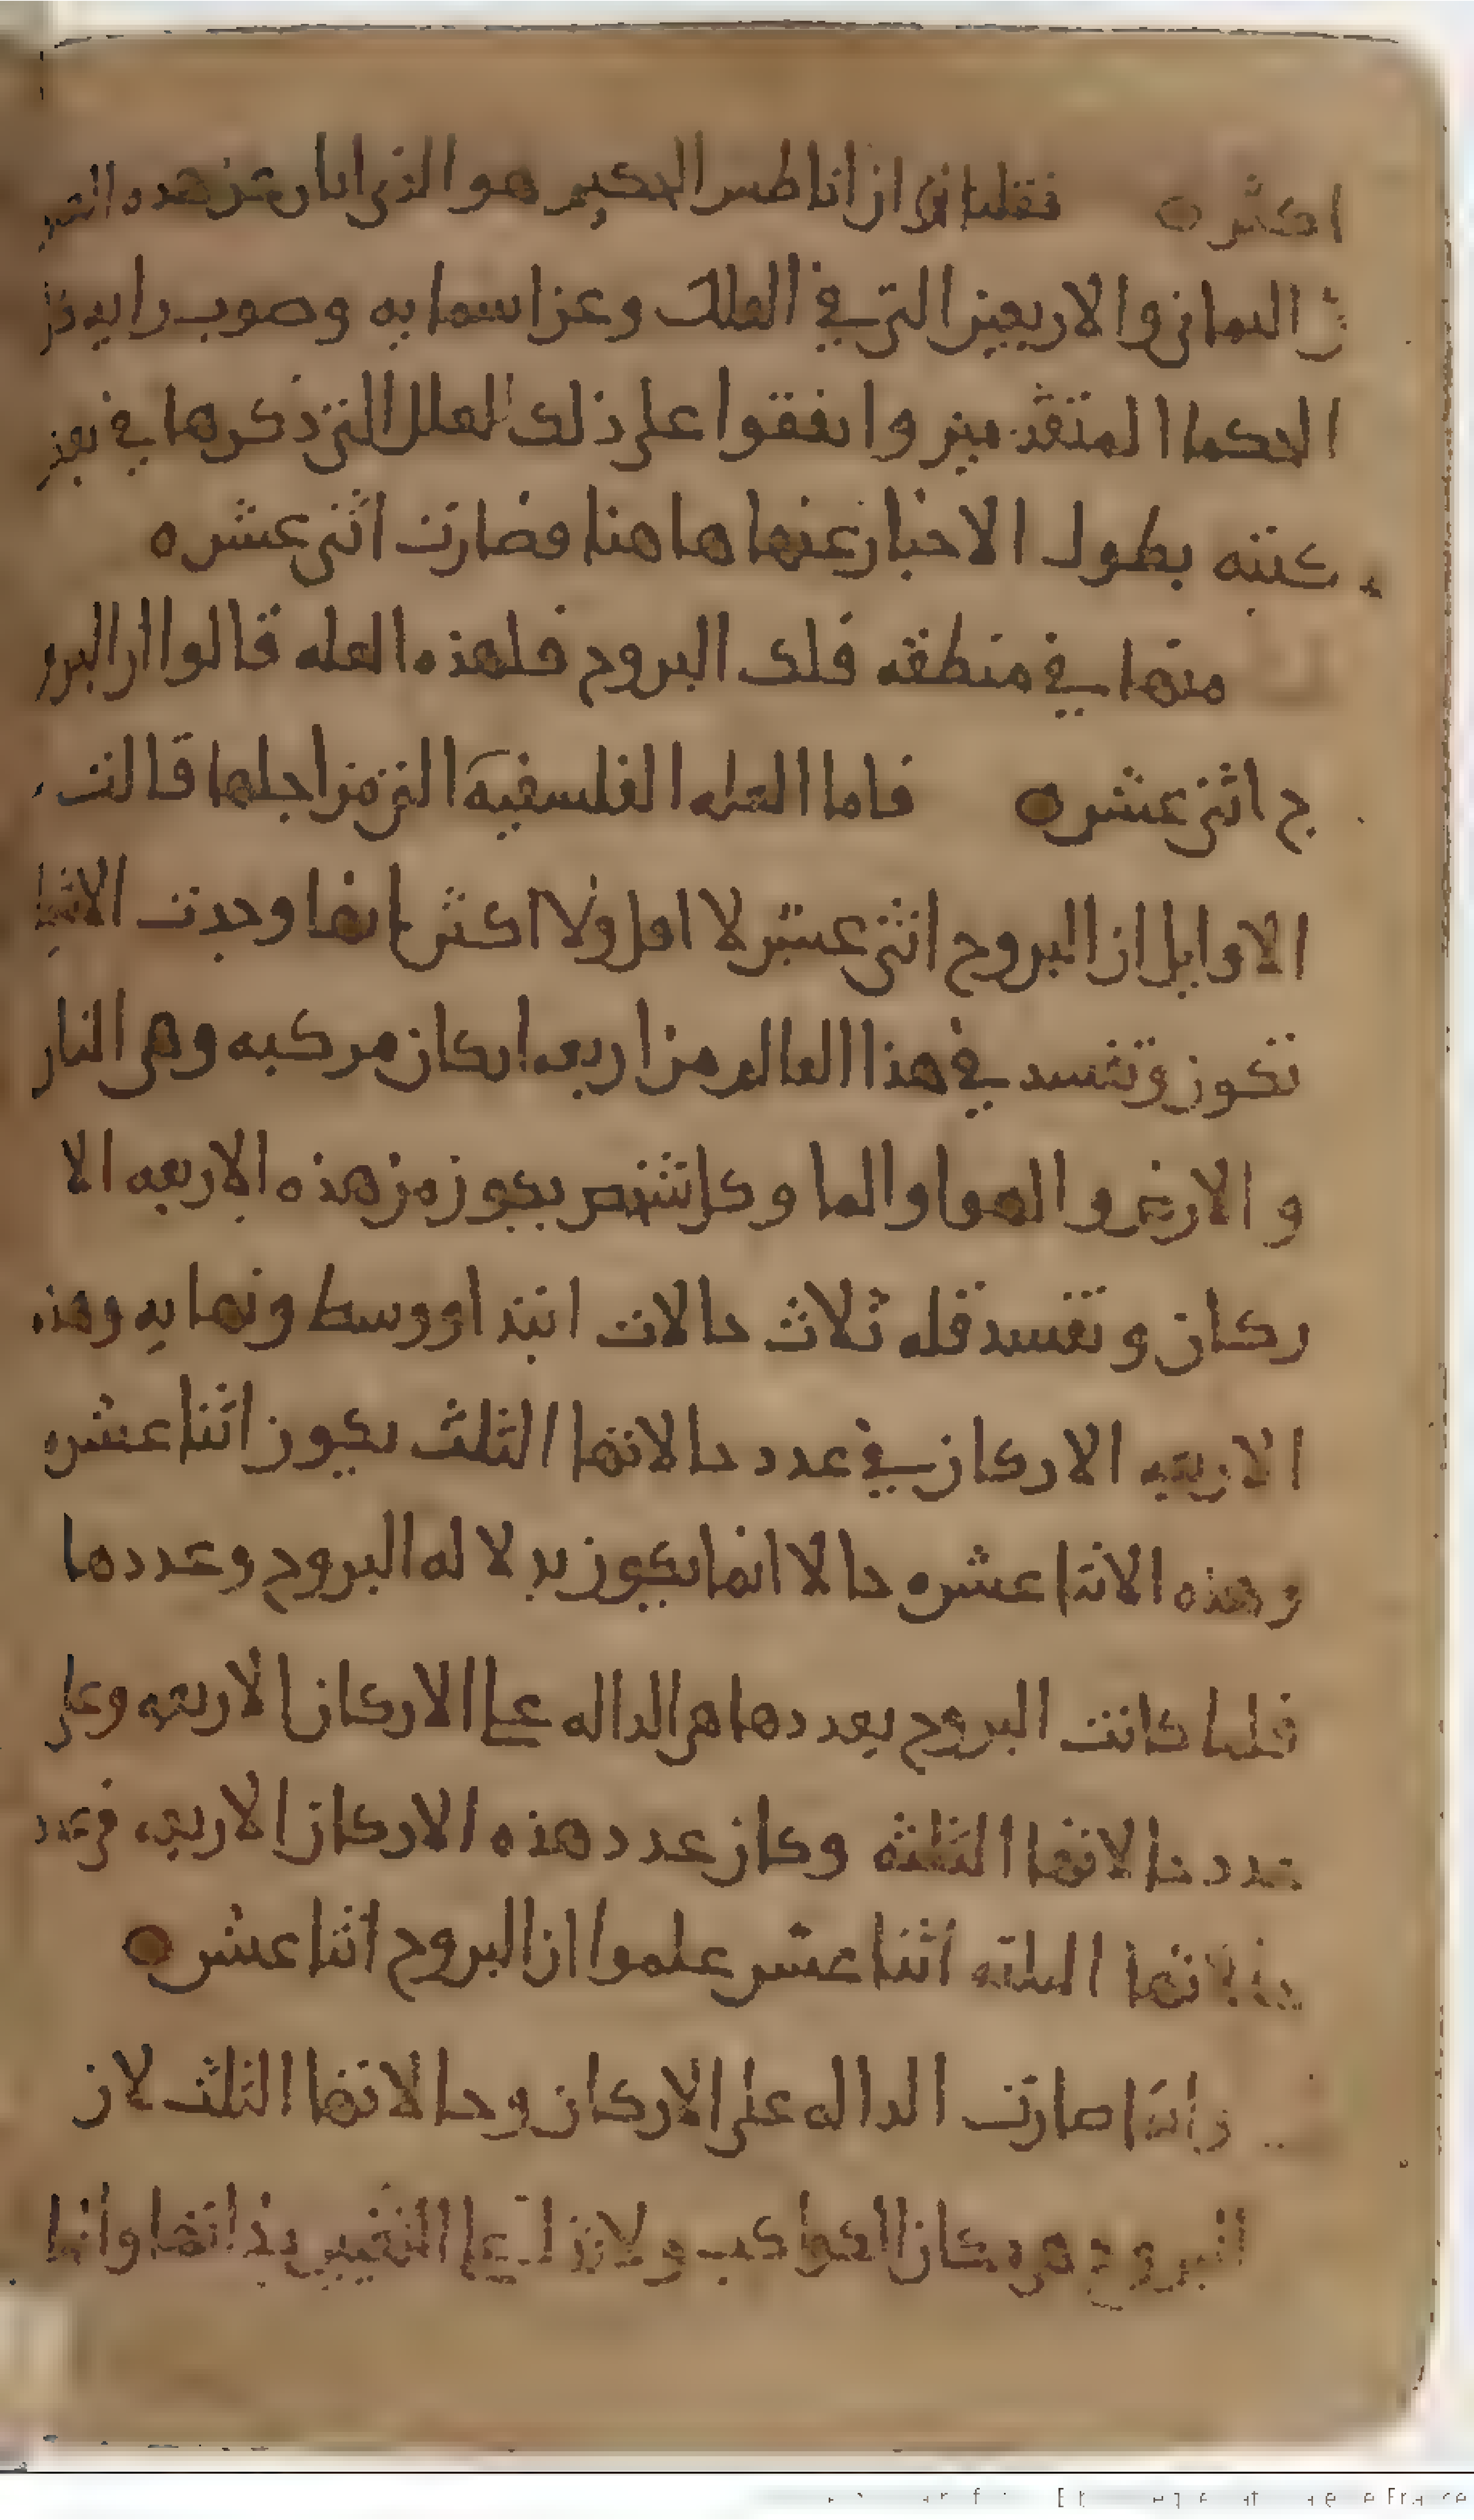 اكثر ه فقلنا ان اراطس الحكيم هو الذي ابان عن هذه الصور
الثماني والاربعين التي في الفلك وعن اسمايه وصوب رايه
الحكما المتقدمين واتفقوا على ذلك لعلل التي ذكرها في بعض
كتبه يطول الاخبار عنها هاهنا فصارت اثنى عشره
منها في منطقه فلك البروج فلهذه العله قالوا ان البرو
ج اثنى عشره فاما العله الفلسفيه التي من اجلها قالت
الاوايل ان البروج اثنى عشر لا اقل ولا اكثر انها وجدت الاشيا
تكون وتفسد في هذا العالم من اربعه اركان مركبه وهى النار
والارض والهوا والما وكل شخص يكون من هذه الاربعه الا
ركان وتفسد فله ثلاث حالات ابتدا ووسط ونهايه وهذه
الاربعه الاركان في عدد حالاتها الثلث يكون اثنا عشره
وهذه الاثنا عشره حالا انما يكون بدلاله البروج وعددها
فلما كانت البروج بعددها هى الداله على الاركان الاربعه وعلى
عدد حالاتها الثلثه وكان عدد هذه الاركان الاربعه في عدد
حالاتها الثلثه اثنا عشر علموا ان البروج اثنا عشر ه
وانما صارت الداله على الاركان وحالاتها الثلث لان
البروج هي مكان الكواكب ولا تدل على التغيير بذاتها وانما